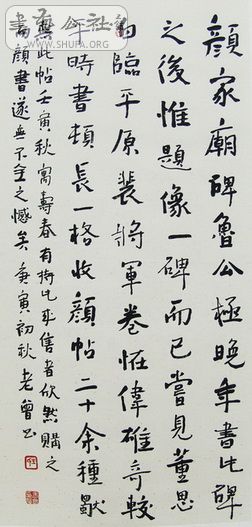 WWW.SHUFA.ORG
顏家廟碑魯公極晚年書此碑
之後惟題像一碑而已嘗見董思
白臨平原裴將軍卷恠偉雄奇較
平時書頓長一格收顏帖二十余種
無此帖壬寅秋寓壽春有持此來售者欣然購之
為顏書遂無不全之憾矣庚寅初秋老曾書